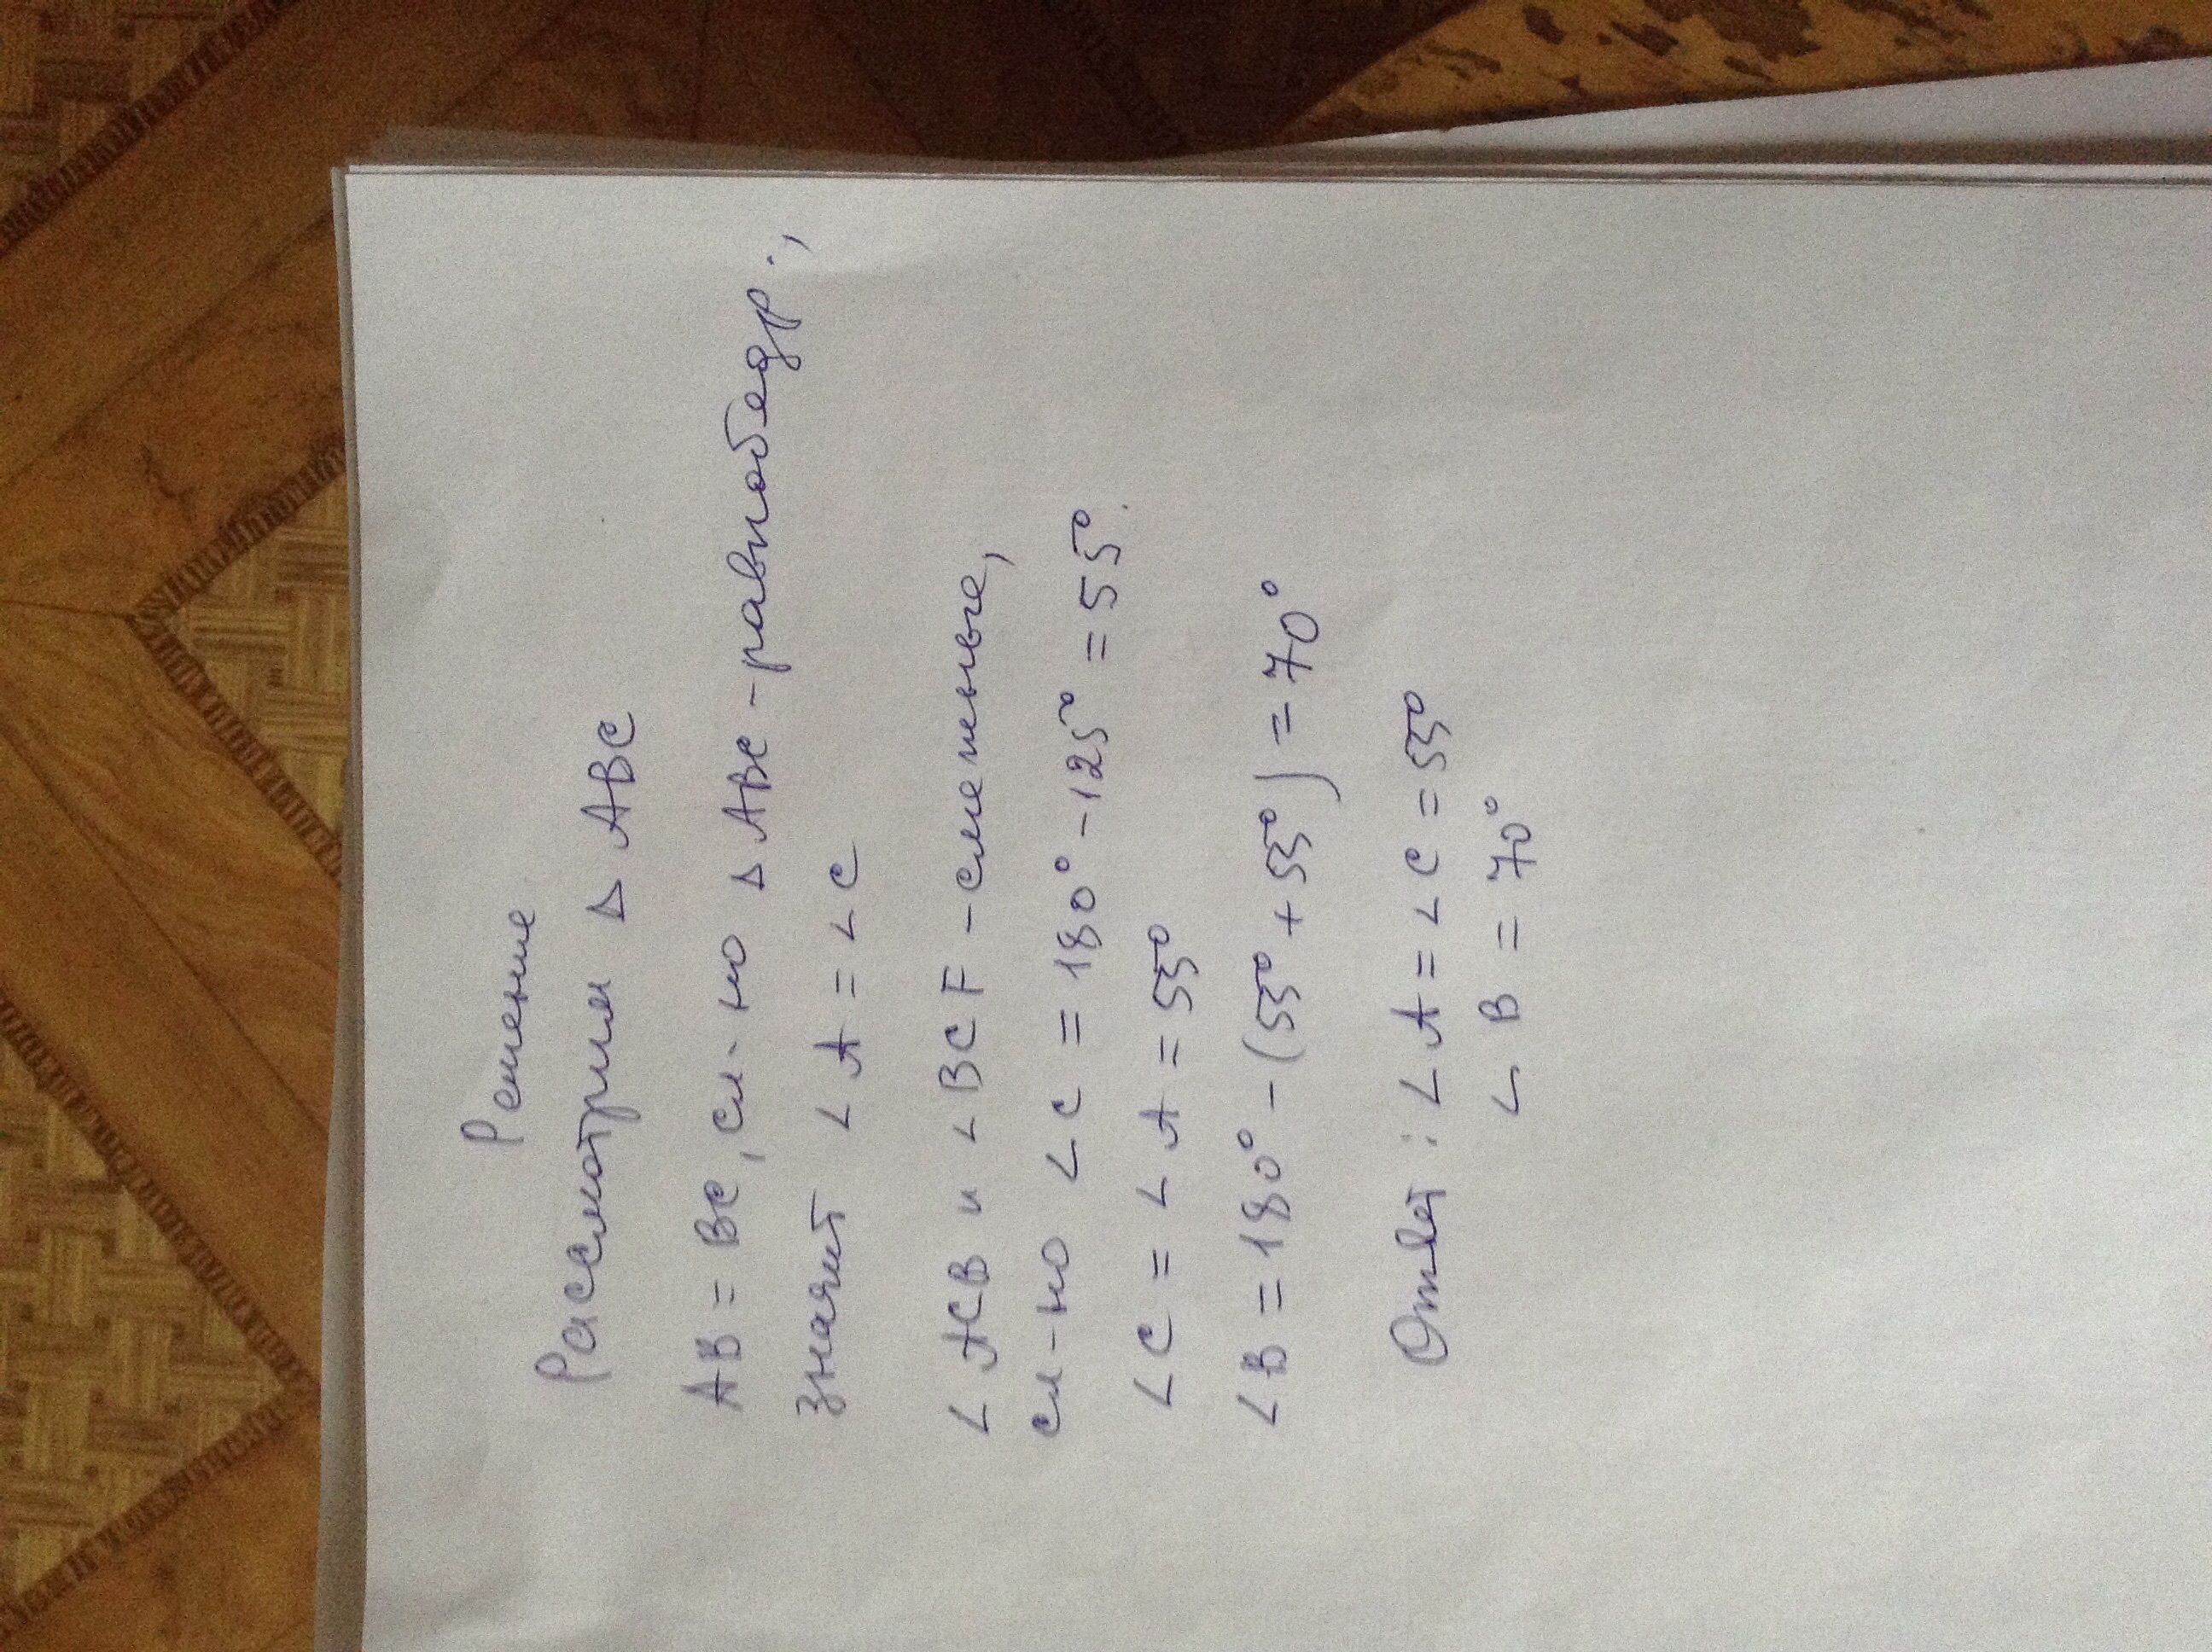 Решение
Рассмотрим Δ ABC
AB = BC, сл-но Δ ABC - равнобедр.,
значит ∠A = ∠C
∠ACB и ∠BCF - смежные,
сл-но ∠C = 180° - 125° = 55°.
∠C = ∠A = 55°
∠B = 180° - (55° + 55°) = 70°
Ответ: ∠A = ∠C = 55°
∠B = 70°